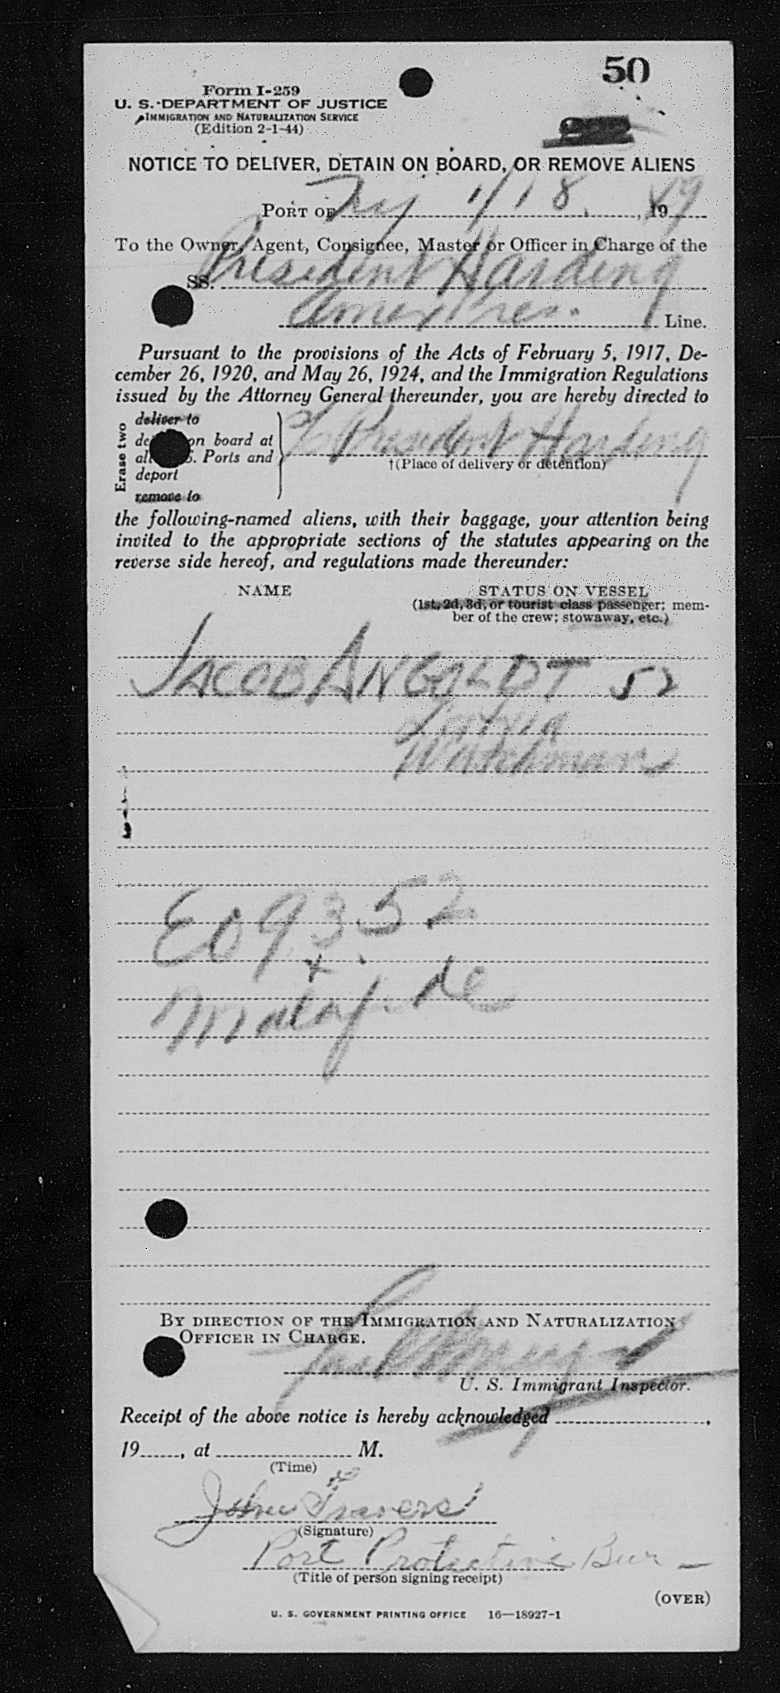 50
Form I-259
U. S. DEPARTMENT OF JUSTICE
IMMIGRATION AND NATURALIZATION SERVICE
(Edition 2-1-44)
NOTICE TO DELIVER, DETAIN ON BOARD, OR REMOVE ALIENS
PORT OF NY 1/18, 1949
To the Owner, Agent, Consignee, Master or Officer in Charge of the
SS. President Harding
Amer Pres. Line.
Pursuant to the provisions of the Acts of February 5, 1917, De-
cember 26, 1920, and May 26, 1924, and the Immigration Regulations
issued by the Attorney General thereunder, you are hereby directed to
Erase two
deliver to
on board at
S. Ports and
deport
remove to
President Harding
†(Place of delivery or detention)
the following-named aliens, with their baggage, your attention being
invited to the appropriate sections of the statutes appearing on the
reverse side hereof, and regulations made thereunder:
NAME STATUS ON VESSEL
(1st, 2d, 3d, or tourist class passenger; mem-
ber of the crew; stowaway, etc.)
JACOB ANGOLDT 52
Latvia
Watchman
EO 9352
+
Malafide
BY DIRECTION OF THE IMMIGRATION AND NATURALIZATION
OFFICER IN CHARGE.
U. S. Immigrant Inspector.
Receipt of the above notice is hereby acknowledged ,
19 , at M.
(Time)
John Travers
(Signature)
Port Protective Bur
(Title of person signing receipt)
(OVER)
U. S. GOVERNMENT PRINTING OFFICE 16—18927-1